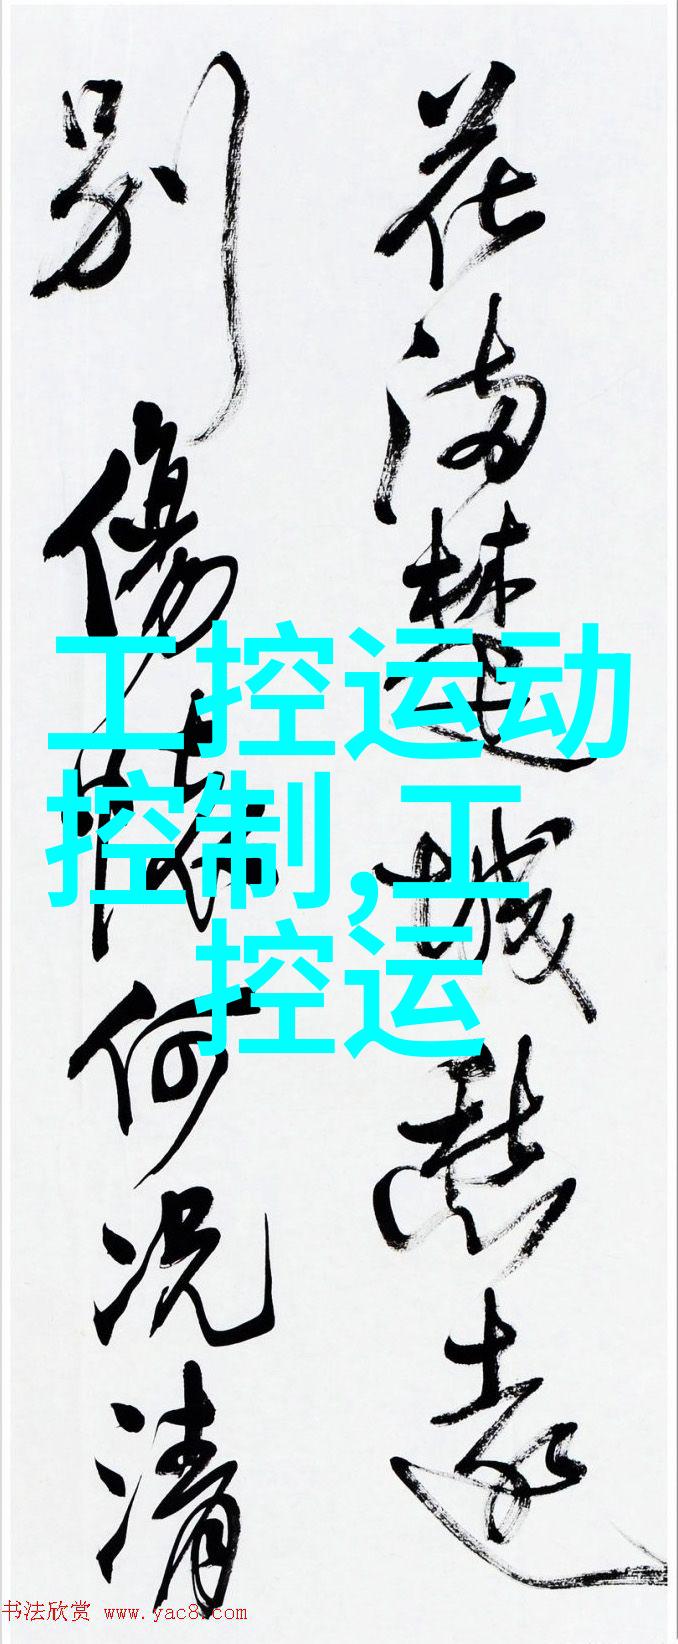 花满楚城愁遠
别傷懷何况清
工控运动
控制,工
控运
书法欣赏 www.yac8.com